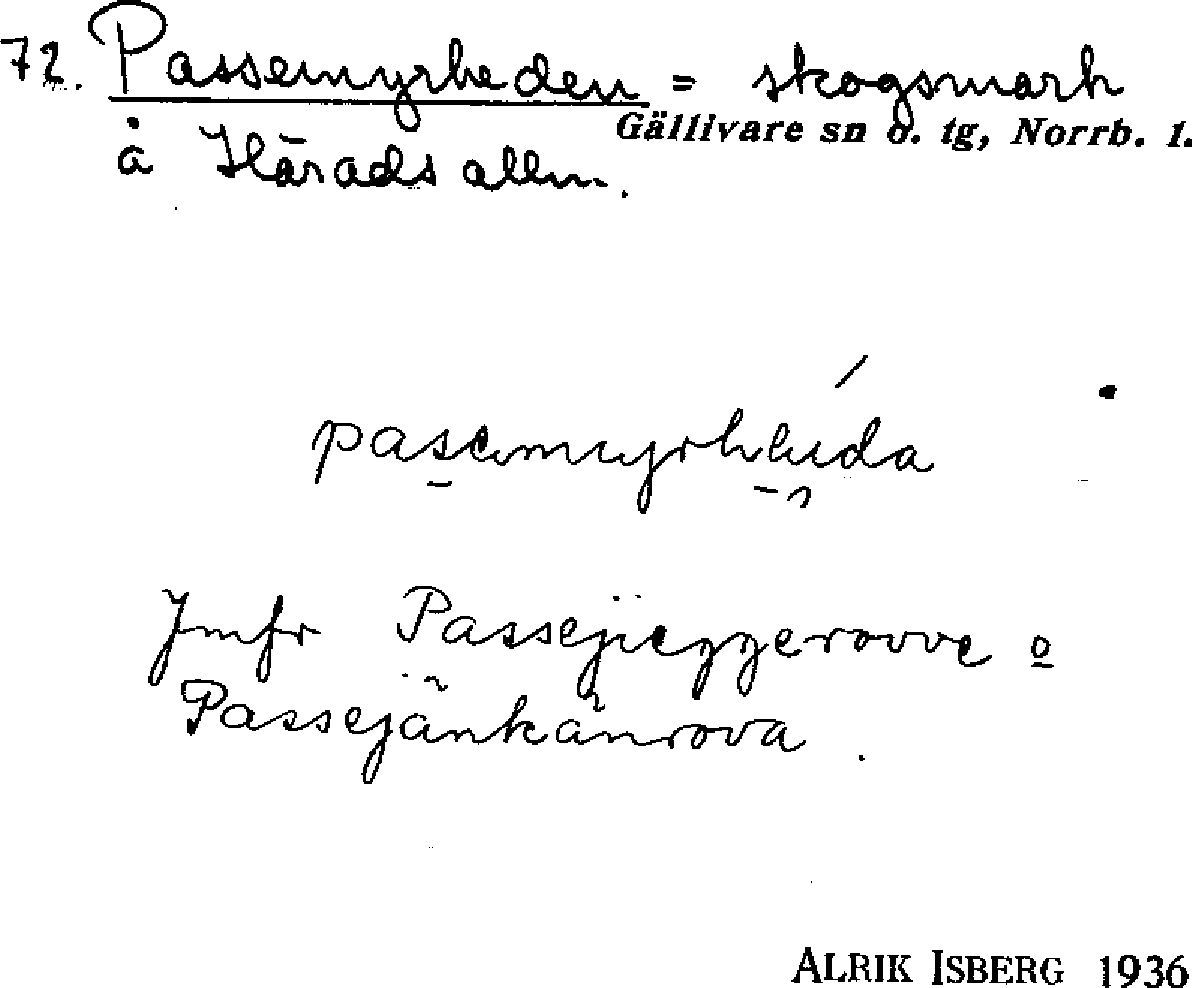 72. Passemyrheden = skogsmark
Gällivare sn o. tg, Norrb. l.
å Härads allm.
pasemyrheida
Jmfr Passejieggerovve o
Passejänkänrova.
ALRIK ISBERG 1936